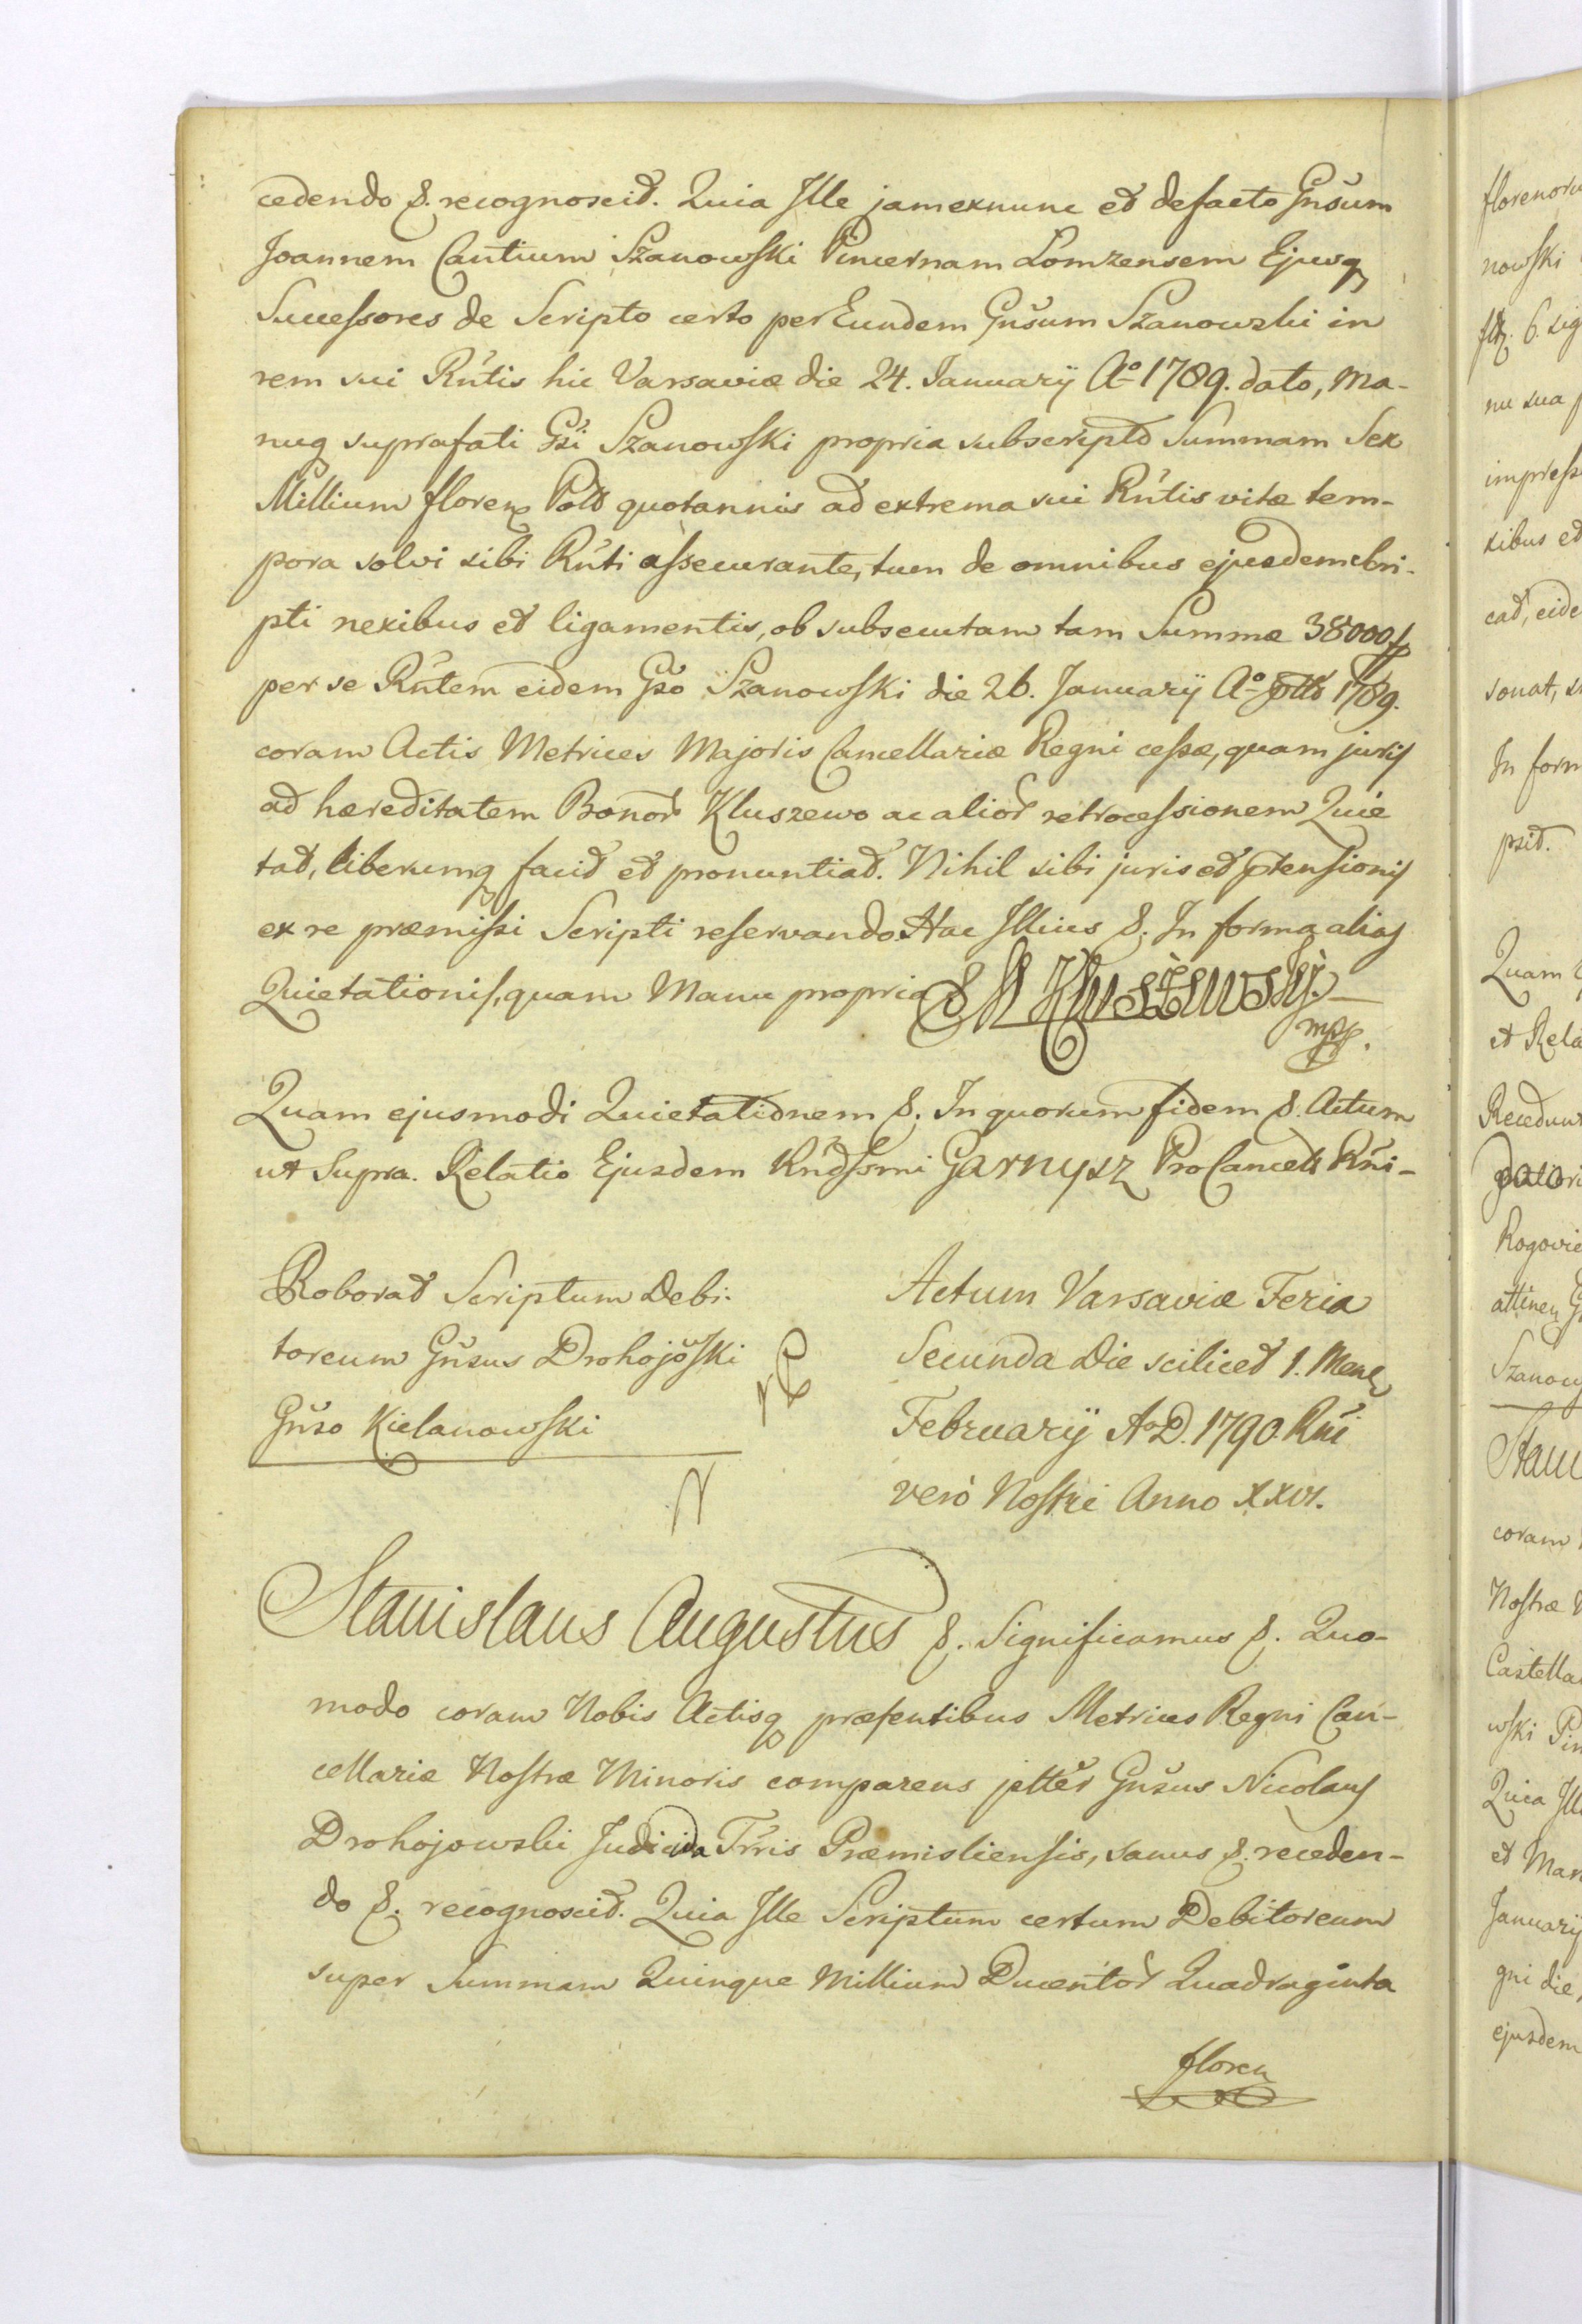 cedendo &. recognoscit. Quia Ille jam exnunc et defacto Gnsum
Joannem Cantium Szanowski Pincernam Lomzensem Ejusq
Successores de Scripto certo per Eundem Gnsum Szanowski in
rem sui Rntis hic Varsaviæ die 24. Januarÿ Aº 1789. dato, Ma-
nuq suprafati Gsi Szanowski propria subscripto Summam Sex
Millium floren Pold quotannis ad extrema sui Rntis vitæ tem-
pora solvi sibi Rnti assecurante, tum de omnibus ejusdem Scri-
pti nexibus et ligamentis, ob subsecutam tam Summæ 38000 f
per se Rntem eidem Gso Szanowski die 26. Januarÿ Aº 1789.
coram Actis Metrices Majoris Cancellariæ Regni cessæ, quam juris
ad hæreditatem Bonor Kluszewo ac alior retrocessionem Quie
tat, liberumq facit et pronuntiat. Nihil sibi juris et ptensionis
ex re præmissi Scripti reservando. Hac Illius &. In forma alias
Quietationis, quam Manu propria Kluszewski
mpp.
Quam ejusmodi Quietationem &. In quorum fidem &. Actum
ut Supra. Relatio Ejusdem Rndssmi Garnysz ProCancell Rni-
Roborat Scriptum Debi-
toreum Gnsus Drohojowski
Gnso Kielanowski
Actum Varsaviæ Feria
Secunda Die scilicet 1. Mens
Februarÿ A D. 1790. Rni
verò Nostri Anno XXVI.
Stanislaus Augustus &. Significamus &. Quo-
modo coram Nobis Actisq præsentibus Metrices Regni Can-
cellariæ Nostræ Minoris comparens psltter Gnsus Nicolaus
Drohojowski Trris Præmisliensis, sanus &. receden-
do &. recognoscit. Quia Ille Scriptum certum Debitoreum
super Summam Quinque Millium Ducentor Quadraginta
floren
florenoru
nowski
6. sig
nu sua
impress
xibus et
cat, eide
sonat,
In form
psit.
Quam
et Rela
Recedun
Rogovie
attinen
Szanow
Stani
coram
Nostræ
Castella
wski Pin
Quia Ille
et Man
Januarÿ
gni die,
ejusdem